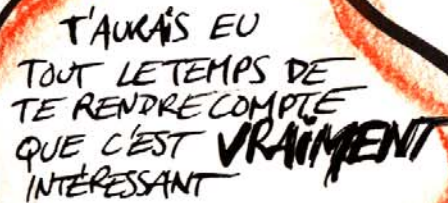 T'AURAIS EU
TOUT LE TEMPS DE
TE RENDRE COMPTE
QUE C'EST VRAIMENT
INTÉRESSANT